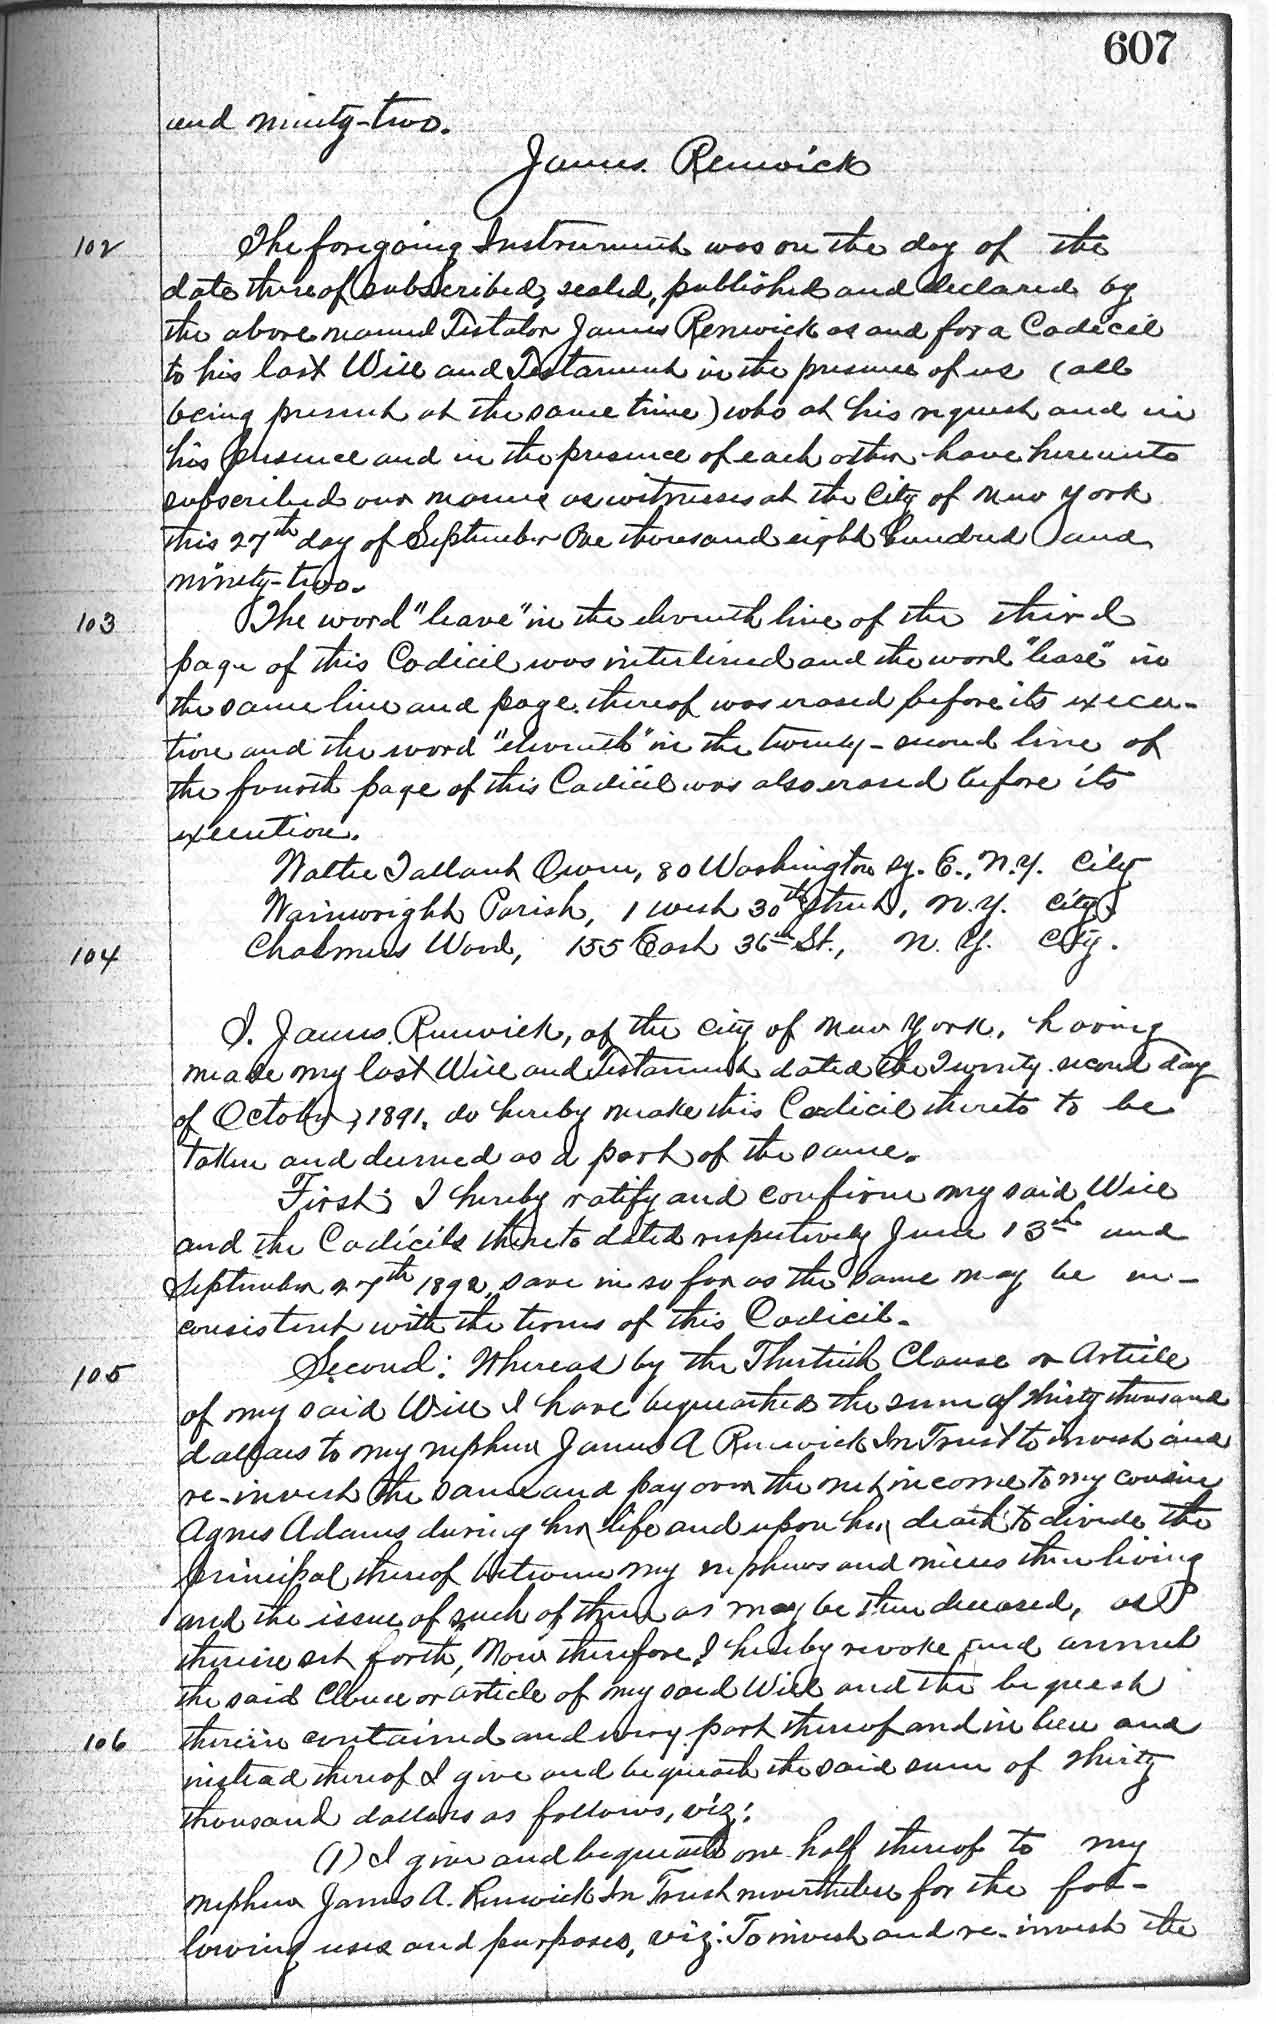 607
and ninety-two.
James Renwick
102 The foregoing Instrument was on the day of the
date thereof subscribed, sealed, published and declared by
the above named Testator James Renwick as and for a Codicil
to his last Will and Testament in the presence of us (all
being present at the same time) who at his request and in
his presence and in the presence of each other have hereunto
subscribed our names as witnesses at the City of New York
this 27th day of September One thousand eight hundred and
ninety-two.
103 The word "leave" in the eleventh line of the third
page of this Codicil was interlined and the word "lease" in
the same line and page thereof was erased before its execu-
tion and the word "eleventh" in the twenty-second line of
the fourth page of this Codicil was also erased before its
execution.
Walter Tallant Owen, 80 Washington Sq. E., N.Y. City
Wainwright Parish, 1 West 30th Street, N.Y. City
104 Chalmers Wood, 155 East 36th St., N.Y. City.
I, James Renwick, of the City of New York, having
made my last Will and Testament dated the Twenty second day
of October, 1891, do hereby make this Codicil thereto to be
taken and deemed as a part of the same.
First: I hereby ratify and confirm my said Will
and the Codicils thereto dated respectively June 13th and
September 27th 1892, save in so far as the same may be in-
consistent with the terms of this Codicil.
105 Second: Whereas by the Thirtieth Clause or Article
of my said Will I have bequeathed the sum of thirty thousand
dollars to my nephew James A Renwick In Trust to invest and
re-invest the same and pay over the net income to my cousin
Agnes Adams during her life and upon her death to divide the
principal thereof between my nephews and nieces then living
and the issue of such of them as may be then deceased, as
therein set forth, Now therefore I hereby revoke and annul
the said Clause or article of my said Will and the bequest
106 therein contained and every part thereof and in lieu and
instead thereof I give and bequeath the said sum of thirty
thousand dollars as follows, viz:
(1) I give and bequeath one half thereof to my
nephew James A. Renwick In Trust nevertheless for the fol-
lowing uses and purposes, viz: To invest and re-invest the